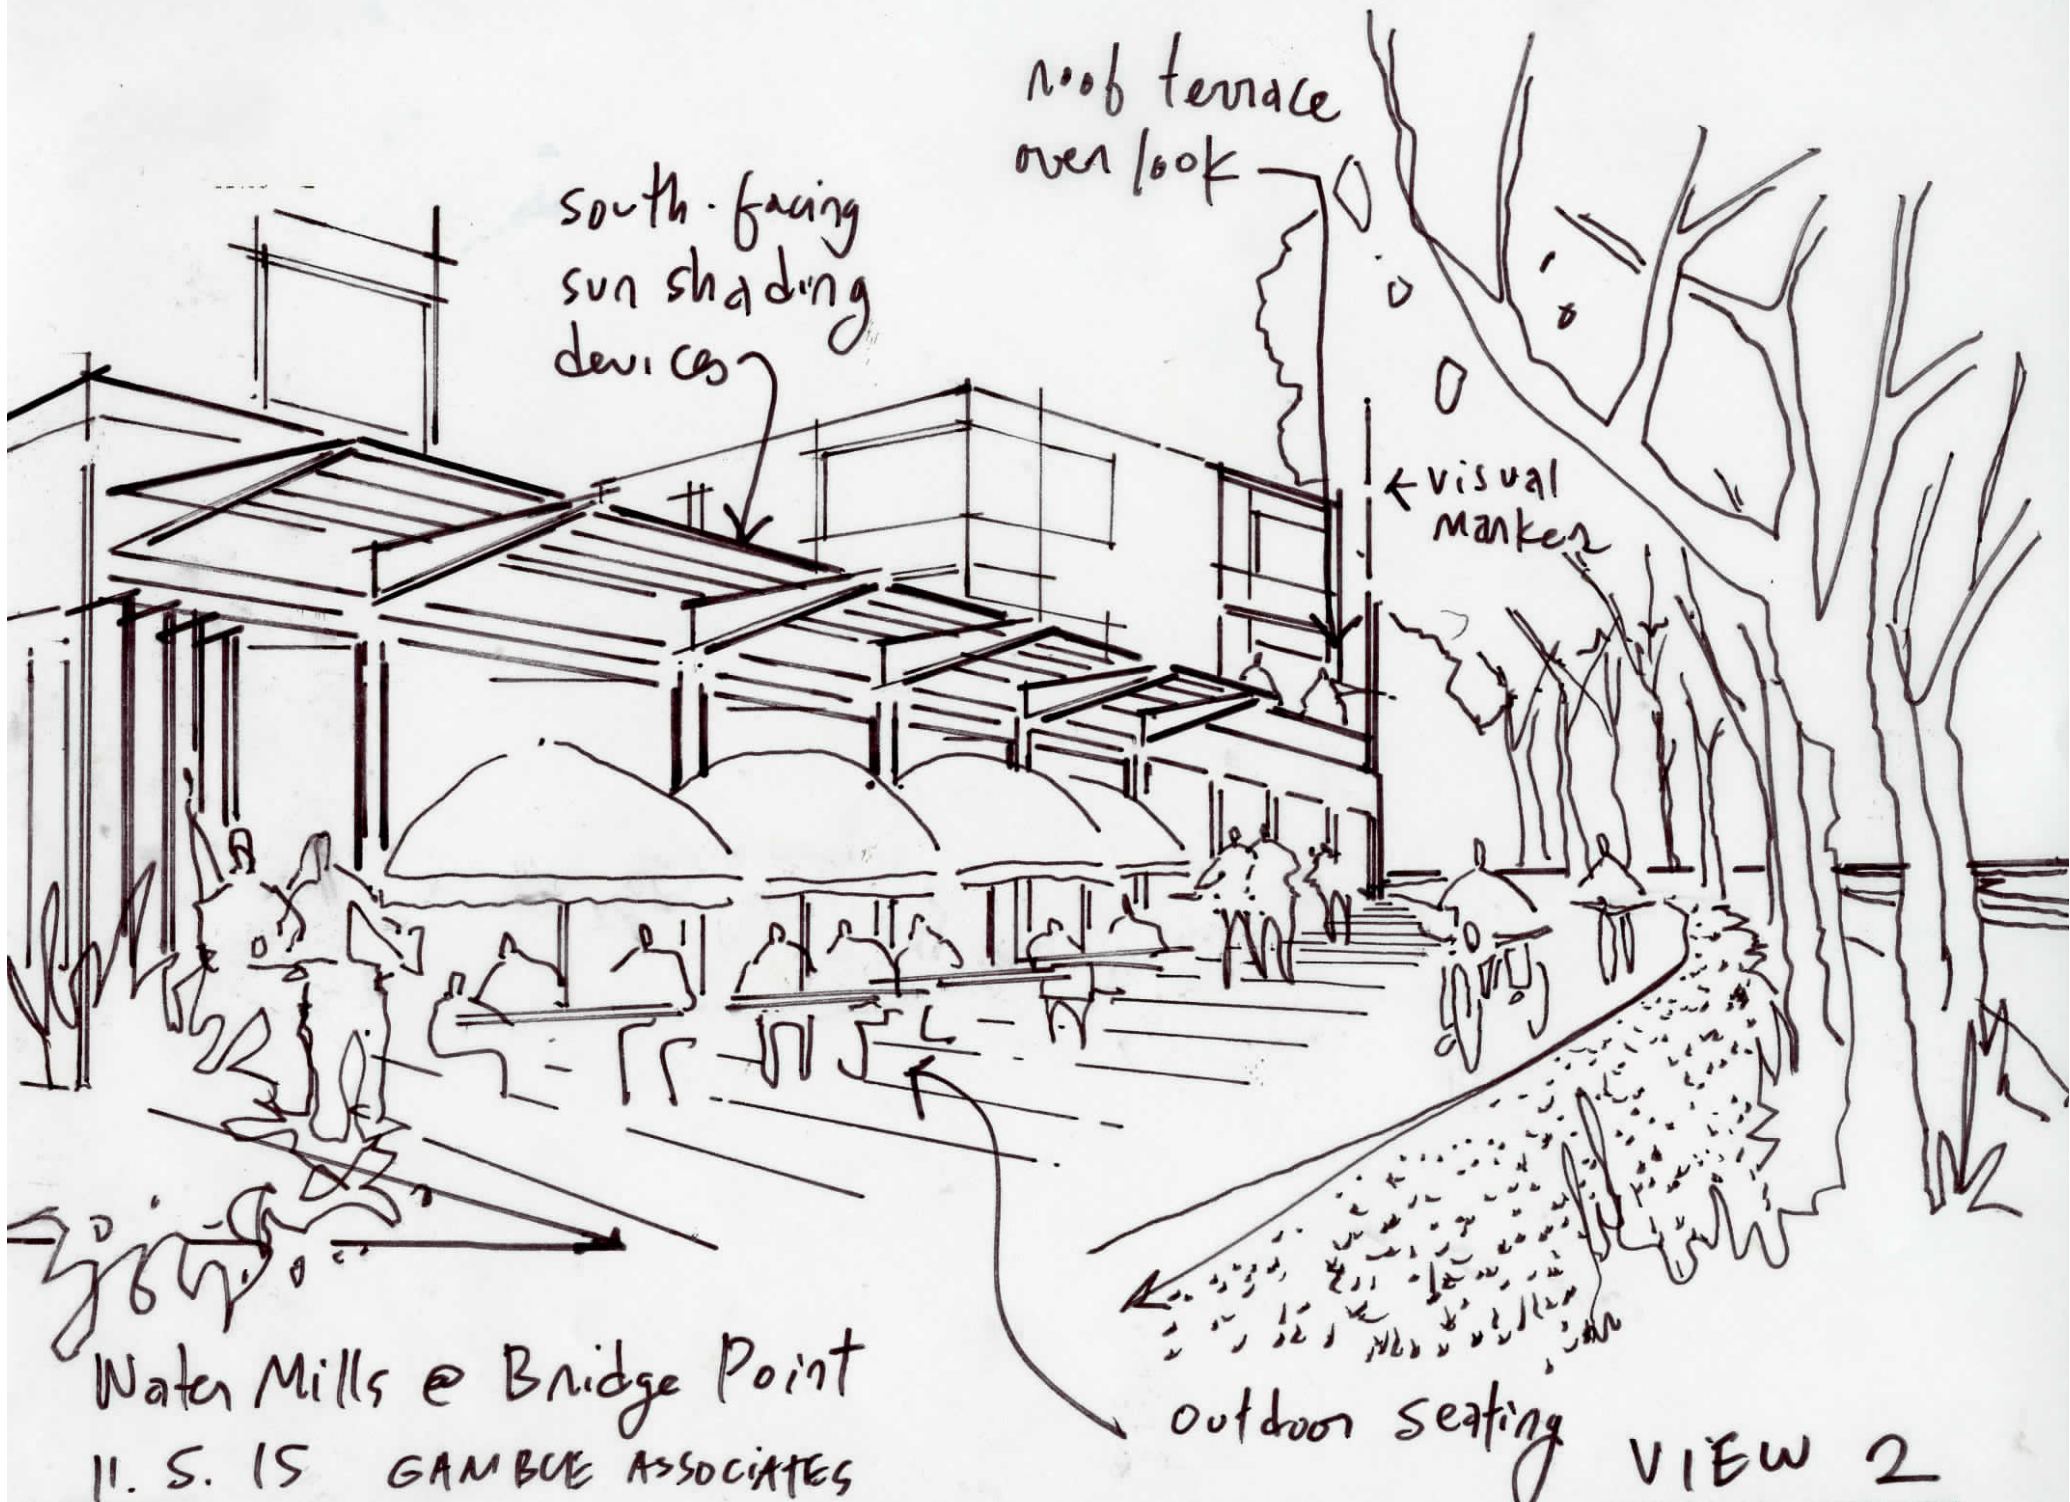 roof terrace
over look
south-facing
sun shading
devices
visual
marker
Water Mills @ Bridge Point
11. 5. 15 GAMBLE ASSOCIATES
outdoor seating
VIEW 2